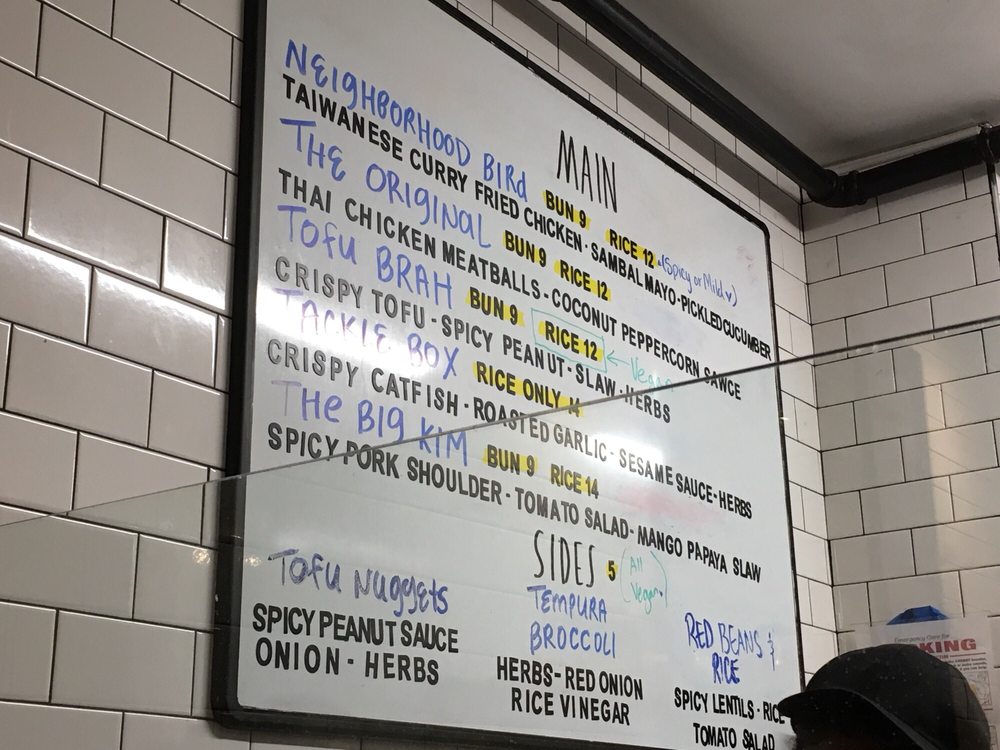 MAIN
NEIGHBORHOOD BIRd BUN 9 RICE 12 (Spicy or Mild)
TAIWANESE CURRY FRIED CHICKEN - SAMBAL MAYO - PICKLED CUCUMBER
THE ORIGINAL BUN 9 RICE 12
THAI CHICKEN MEATBALLS - COCONUT PEPPERCORN SAWCE
TOFU BRAH BUN 9 RICE 12 ← Vegan
CRISPY TOFU - SPICY PEANUT - SLAW - HERBS
TACKLE BOX RICE ONLY 14
CRISPY CATFISH - ROASTED GARLIC - SESAME SAUCE - HERBS
THE BIG KIM BUN 9 RICE 14
SPICY PORK SHOULDER - TOMATO SALAD - MANGO PAPAYA SLAW
SIDES 5 (All Vegan)
TOFU NUggETS
SPICY PEANUT SAUCE
ONION - HERBS
TEMPURA
BROCCOLI
HERBS - RED ONION
RICE VINEGAR
RED BEANS &
RICE
SPICY LENTILS - RICE
TOMATO SALAD
Emergency Care for
KING